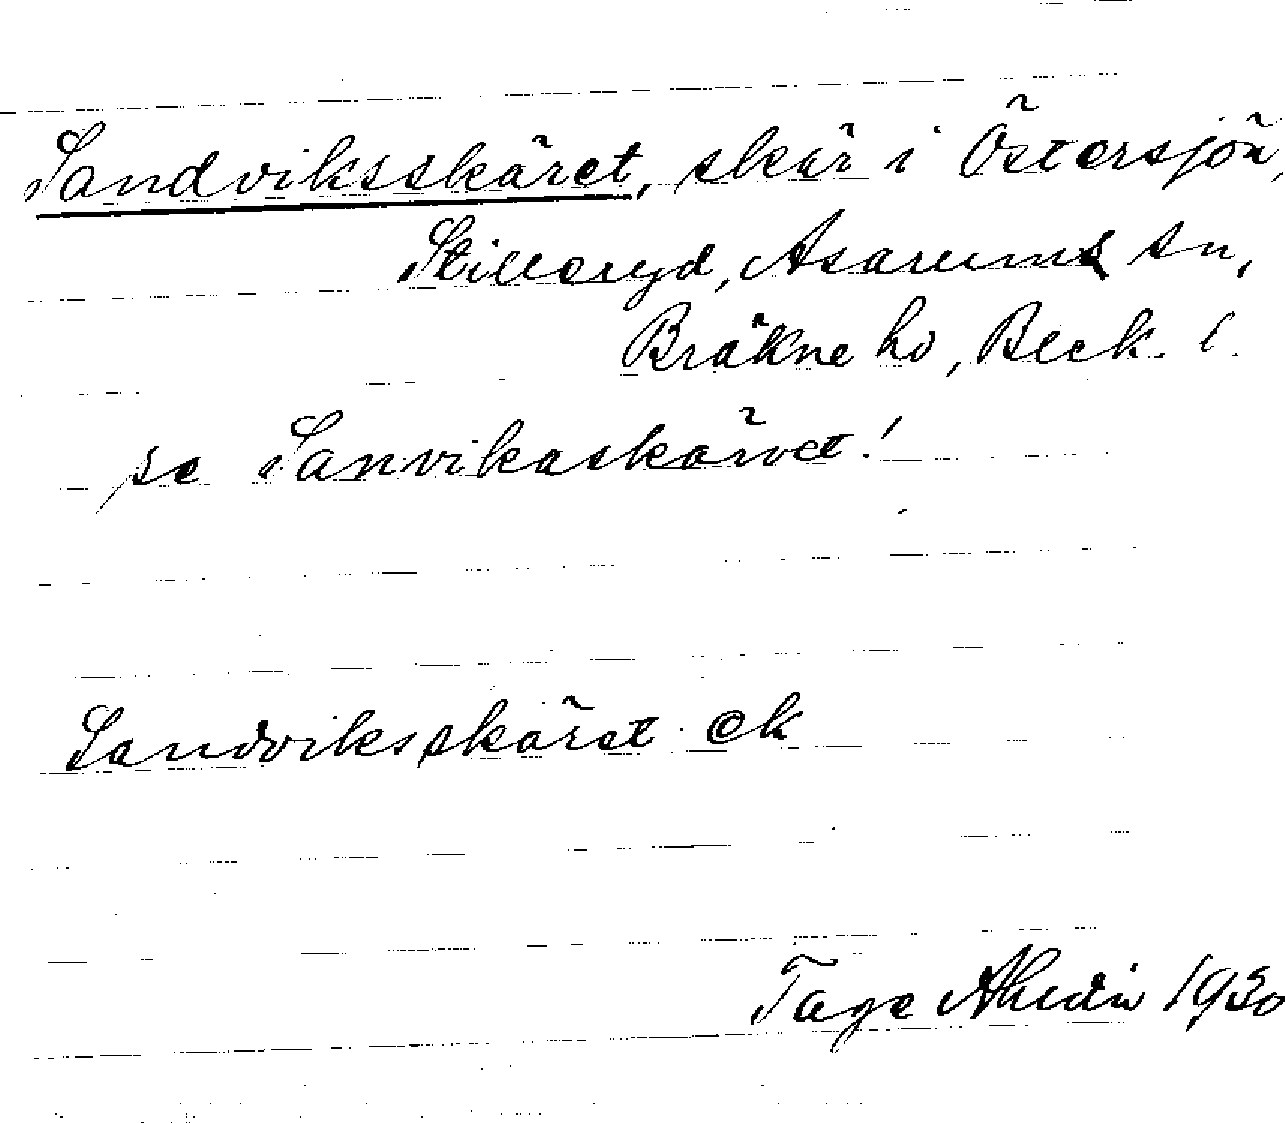 Sandviksskäret, skär i Östersjön,
Stilleryd, Asarums sn,
Bräkne hd, Blek. l.
se Sanvikaskärvet!
Sandviksskäret ek
Tage Ahldin 1930